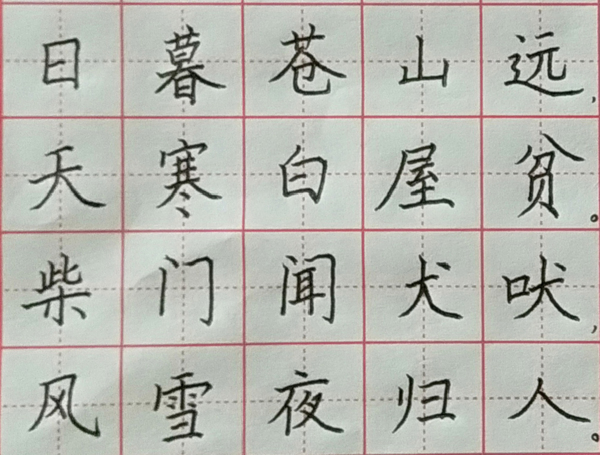 日暮苍山远,
天寒白屋贫。
柴门闻犬吠,
风雪夜归人。